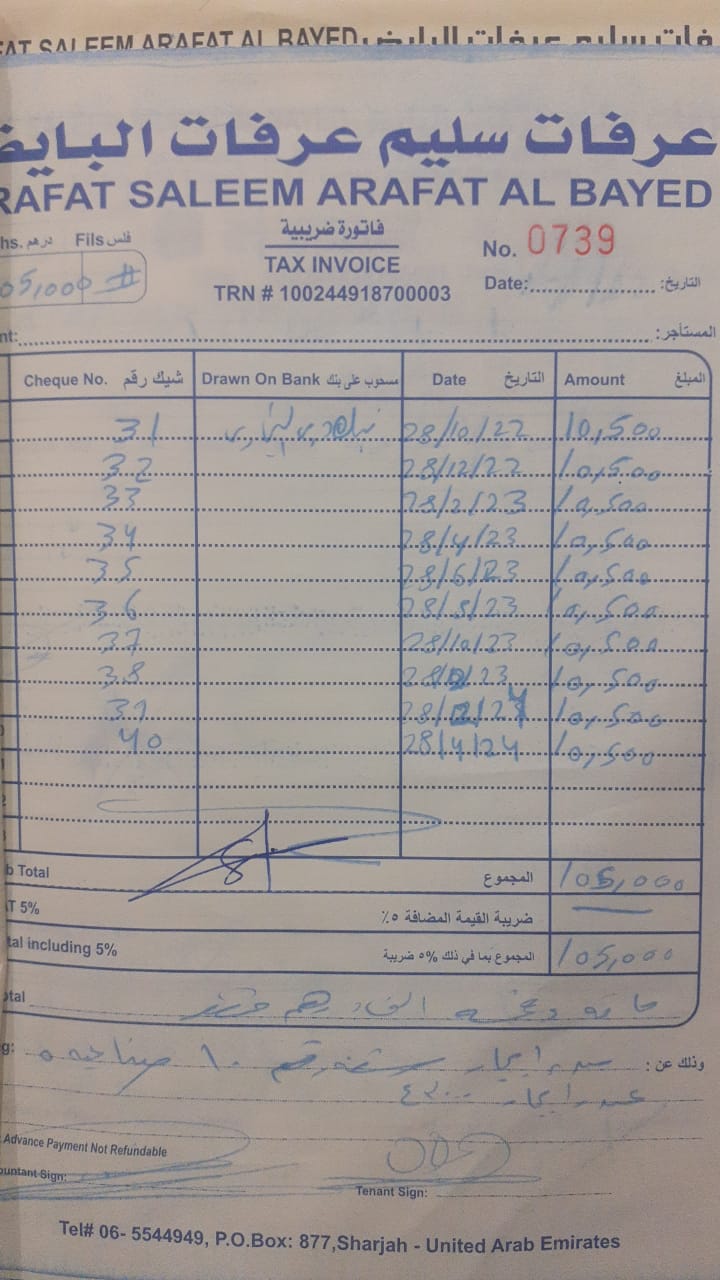 عرفات سليم عرفات البايض
RAFAT SALEEM ARAFAT AL BAYED
hs. درهم Fils فلس
05,000 #
فاتورة ضريبية
TAX INVOICE
TRN # 100244918700003
No. 0739
Date: التاريخ:
nt: المستأجر:
Cheque No. شيك رقم Drawn On Bank مسحوب على بنك Date التاريخ Amount المبلغ
31 28/10/22 10,500
32 28/12/22 10,500
33 28/2/23 10,500
34 28/4/23 10,500
35 28/6/23 10,500
36 28/8/23 10,500
37 28/10/23 10,500
38 28/12/23 10,500
39 10,500
40 28/4/24 10,500
b Total المجموع 105,000
T 5% ضريبة القيمة المضافة ٥٪
tal including 5% المجموع بما في ذلك ٥% ضريبة 105,000
otal
g: وذلك عن:
Advance Payment Not Refundable
ountant Sign:
Tenant Sign:
Tel# 06- 5544949, P.O.Box: 877,Sharjah - United Arab Emirates